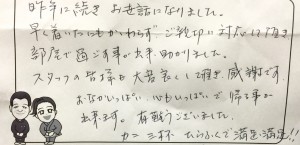 昨年に続き お世話になりました。
早く着いたにもかかわらず ご親切に対応して頂き
部屋で過ごす事が出来 助かりました。
スタッフの皆様も大変良くして頂き 感謝です。
おなかいっぱい 心もいっぱいで ご帰る事が
出来ます。有難うございました。
カニ三杯 たらふくで満足満足!!